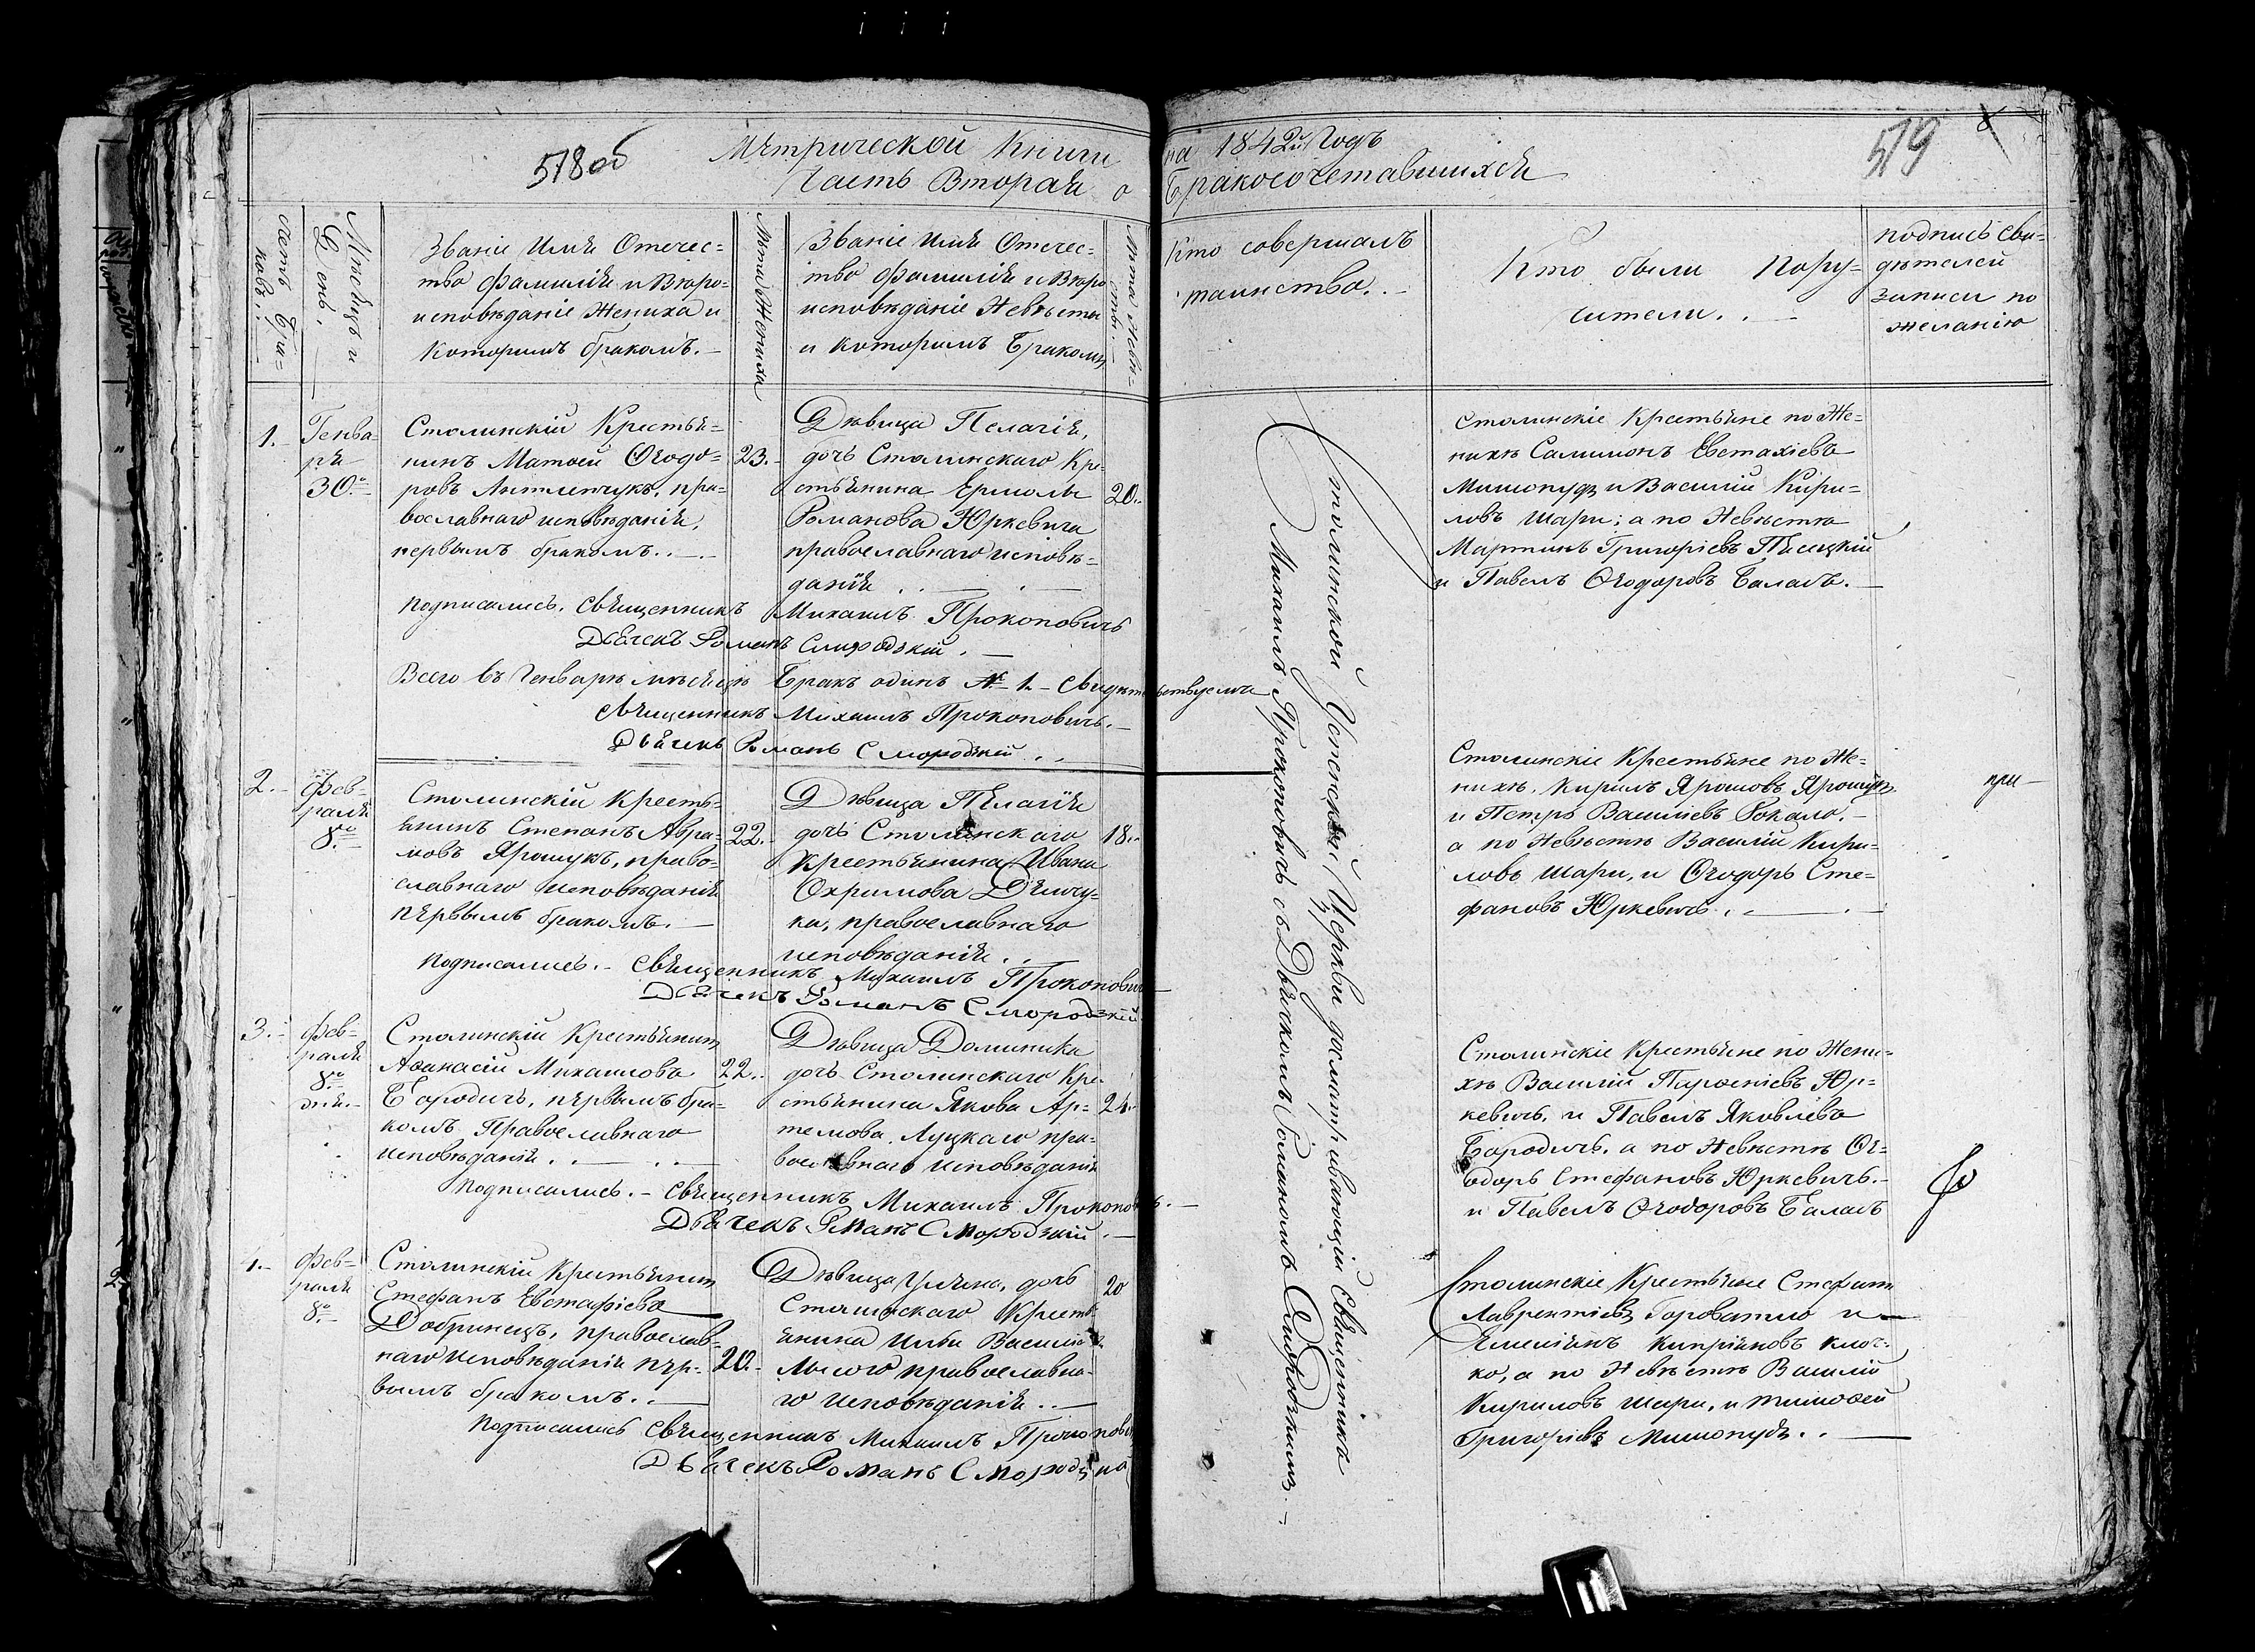 518об
Метрической Книги на 1842й Годъ
Часть Вторая о Бракосочетавшихся
519
Счетъ Бра=
ковъ.
Мѣсяцъ и
День.
Званіе Имя Отечес=
тво Фамилія и Вѣро=
исповѣданіе Жениха и
Которимъ бракомъ.
Лѣта Жениха
Званіе Имя Отечес=
тво Фамилія и Вѣро
исповѣданіе Невѣсты
и которимъ Бракомъ
Лѣта Невѣ=
сты.
Кто совершалъ
таинство.
Кто были Пору=
чители.
подпись Сви=
дѣтелей
записи по
желанію
1.
Генва=
ря
30го
Столинскій Крестья=
нинъ Матѳей Ѳеодо=
ровъ пра=
вославнаго исповѣданія,
первымъ бракомъ.
23.
Дѣвица Пелагія,
дочь Столинскаго Кре=
стьянина Ермолы
Романова Юркевича
православнаго исповѣ=
данія
20.
Столинскіе Крестьяне по Же=
нихѣ Самиионъ Евстахіевъ
Мишопудъ и Василій Кири=
ловъ Шари; а по Невѣстѣ
Мартинъ Григоріевъ Пясецкій
и Павелъ Ѳеодоровъ Баламъ.
подписались. Священникъ Михаилъ Прокоповичъ
Дьячекъ Романъ Смородскій.
Всего въ Генварѣ мѣсяцѣ Бракъ одинъ № 1. Свидѣтельствуемъ
Священникъ Михаилъ Прокоповичъ.
Дьячекъ Романъ Смородскій
Столинской Успенской Церкви досматривающій Священникъ
Михаилъ Прокоповичъ съ Дьячкомъ Романомъ Смородскимъ.
2.
Фев=
раля
8го
Столинскій Кресть=
янинъ Степанъ Авра=
мовъ Ярошукъ, право=
славнаго исповѣданія
первымъ бракомъ.
22.
Дѣвица Пелагія
дочь Столинскаго
Крестьянина Ивана
Охримова Демчу=
ка, православнаго
исповѣданія.
18.
Столинскіе Крестьяне по Же=
нихѣ, Кирилъ Ярошовъ Ярошукъ
и Петръ Василіевъ Рокало.
а по Невѣстѣ Василій Кири=
ловъ Шари, и Ѳеодоръ Сте=
фановъ Юркевичъ.
при
подписались. Священникъ Михаилъ Прокоповичъ
Дьячекъ Романъ Смородскій
3.
Фев=
раля
8го
дня.
Столинскій Крестьянинъ
Аѳанасій Михаиловъ
Бородичъ, первымъ бра=
комъ Православнаго
исповѣданія.
22.
Дѣвица Доминика
дочь Столинскаго Кре=
стьянина Якова Ар=
темова Луцкаго пра=
вославнаго исповѣданія
24.
Столинскіе Крестьяне по Жени=
хѣ Василій Парѳеніевъ Юр=
кевичъ, и Павелъ Яковлевъ
Бородичъ, а по Невѣстѣ Ѳе=
одоръ Стефановъ Юркевичъ.
и Павелъ Ѳеодоровъ Баламъ
подписались. Священникъ Михаилъ Прокоповичъ.
Дьячекъ Романъ Смородскій.
4.
Фев=
раля
8го
Столинскій Крестьянинъ
Стефанъ Евстафіевъ
Добринецъ, православ=
наго исповѣданія пер=
вымъ бракомъ.
20.
Дѣвица Уліяна, дочь
Столинскаго Кресть
янина Ильи Василіева
Лысого православна=
го исповѣданія.
20
Столинскіе Крестьяне Стефанъ
Лаврентіевъ Гороватко и
Емеліянъ Кипріановъ Клоч=
ко, а по Невѣстѣ Василій
Кириловъ Шари, и Тимоѳей
Григоріевъ Мишопудъ.
подписались Священникъ Михаилъ Прокоповичъ
Дьячекъ Романъ Смородскій